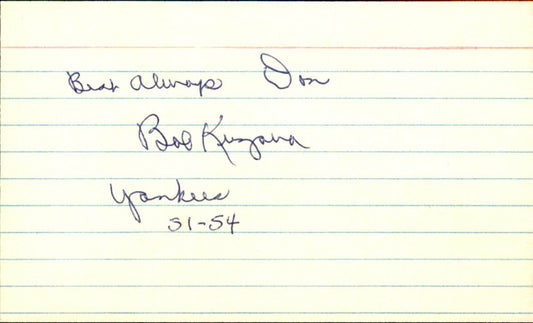 Best Always Don
Bob Kuzava
Yankees
51-54